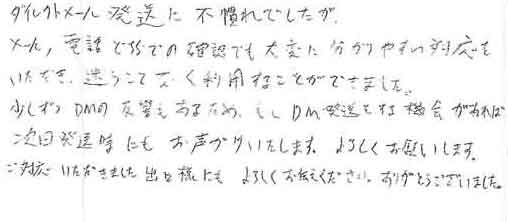 ダイレクトメール発送に不慣れでしたが、
メール、電話どちらでの確認でも大変に分かりやすい対応を
いただき、迷うことなく利用することができました。
少しずつDMの反響もあるため、もしDM発送をする機会があれば
次回発送時にもお声がけいたします。よろしくお願いします。
ご対応いただきました出口様にもよろしくお伝えください。ありがとうございました。